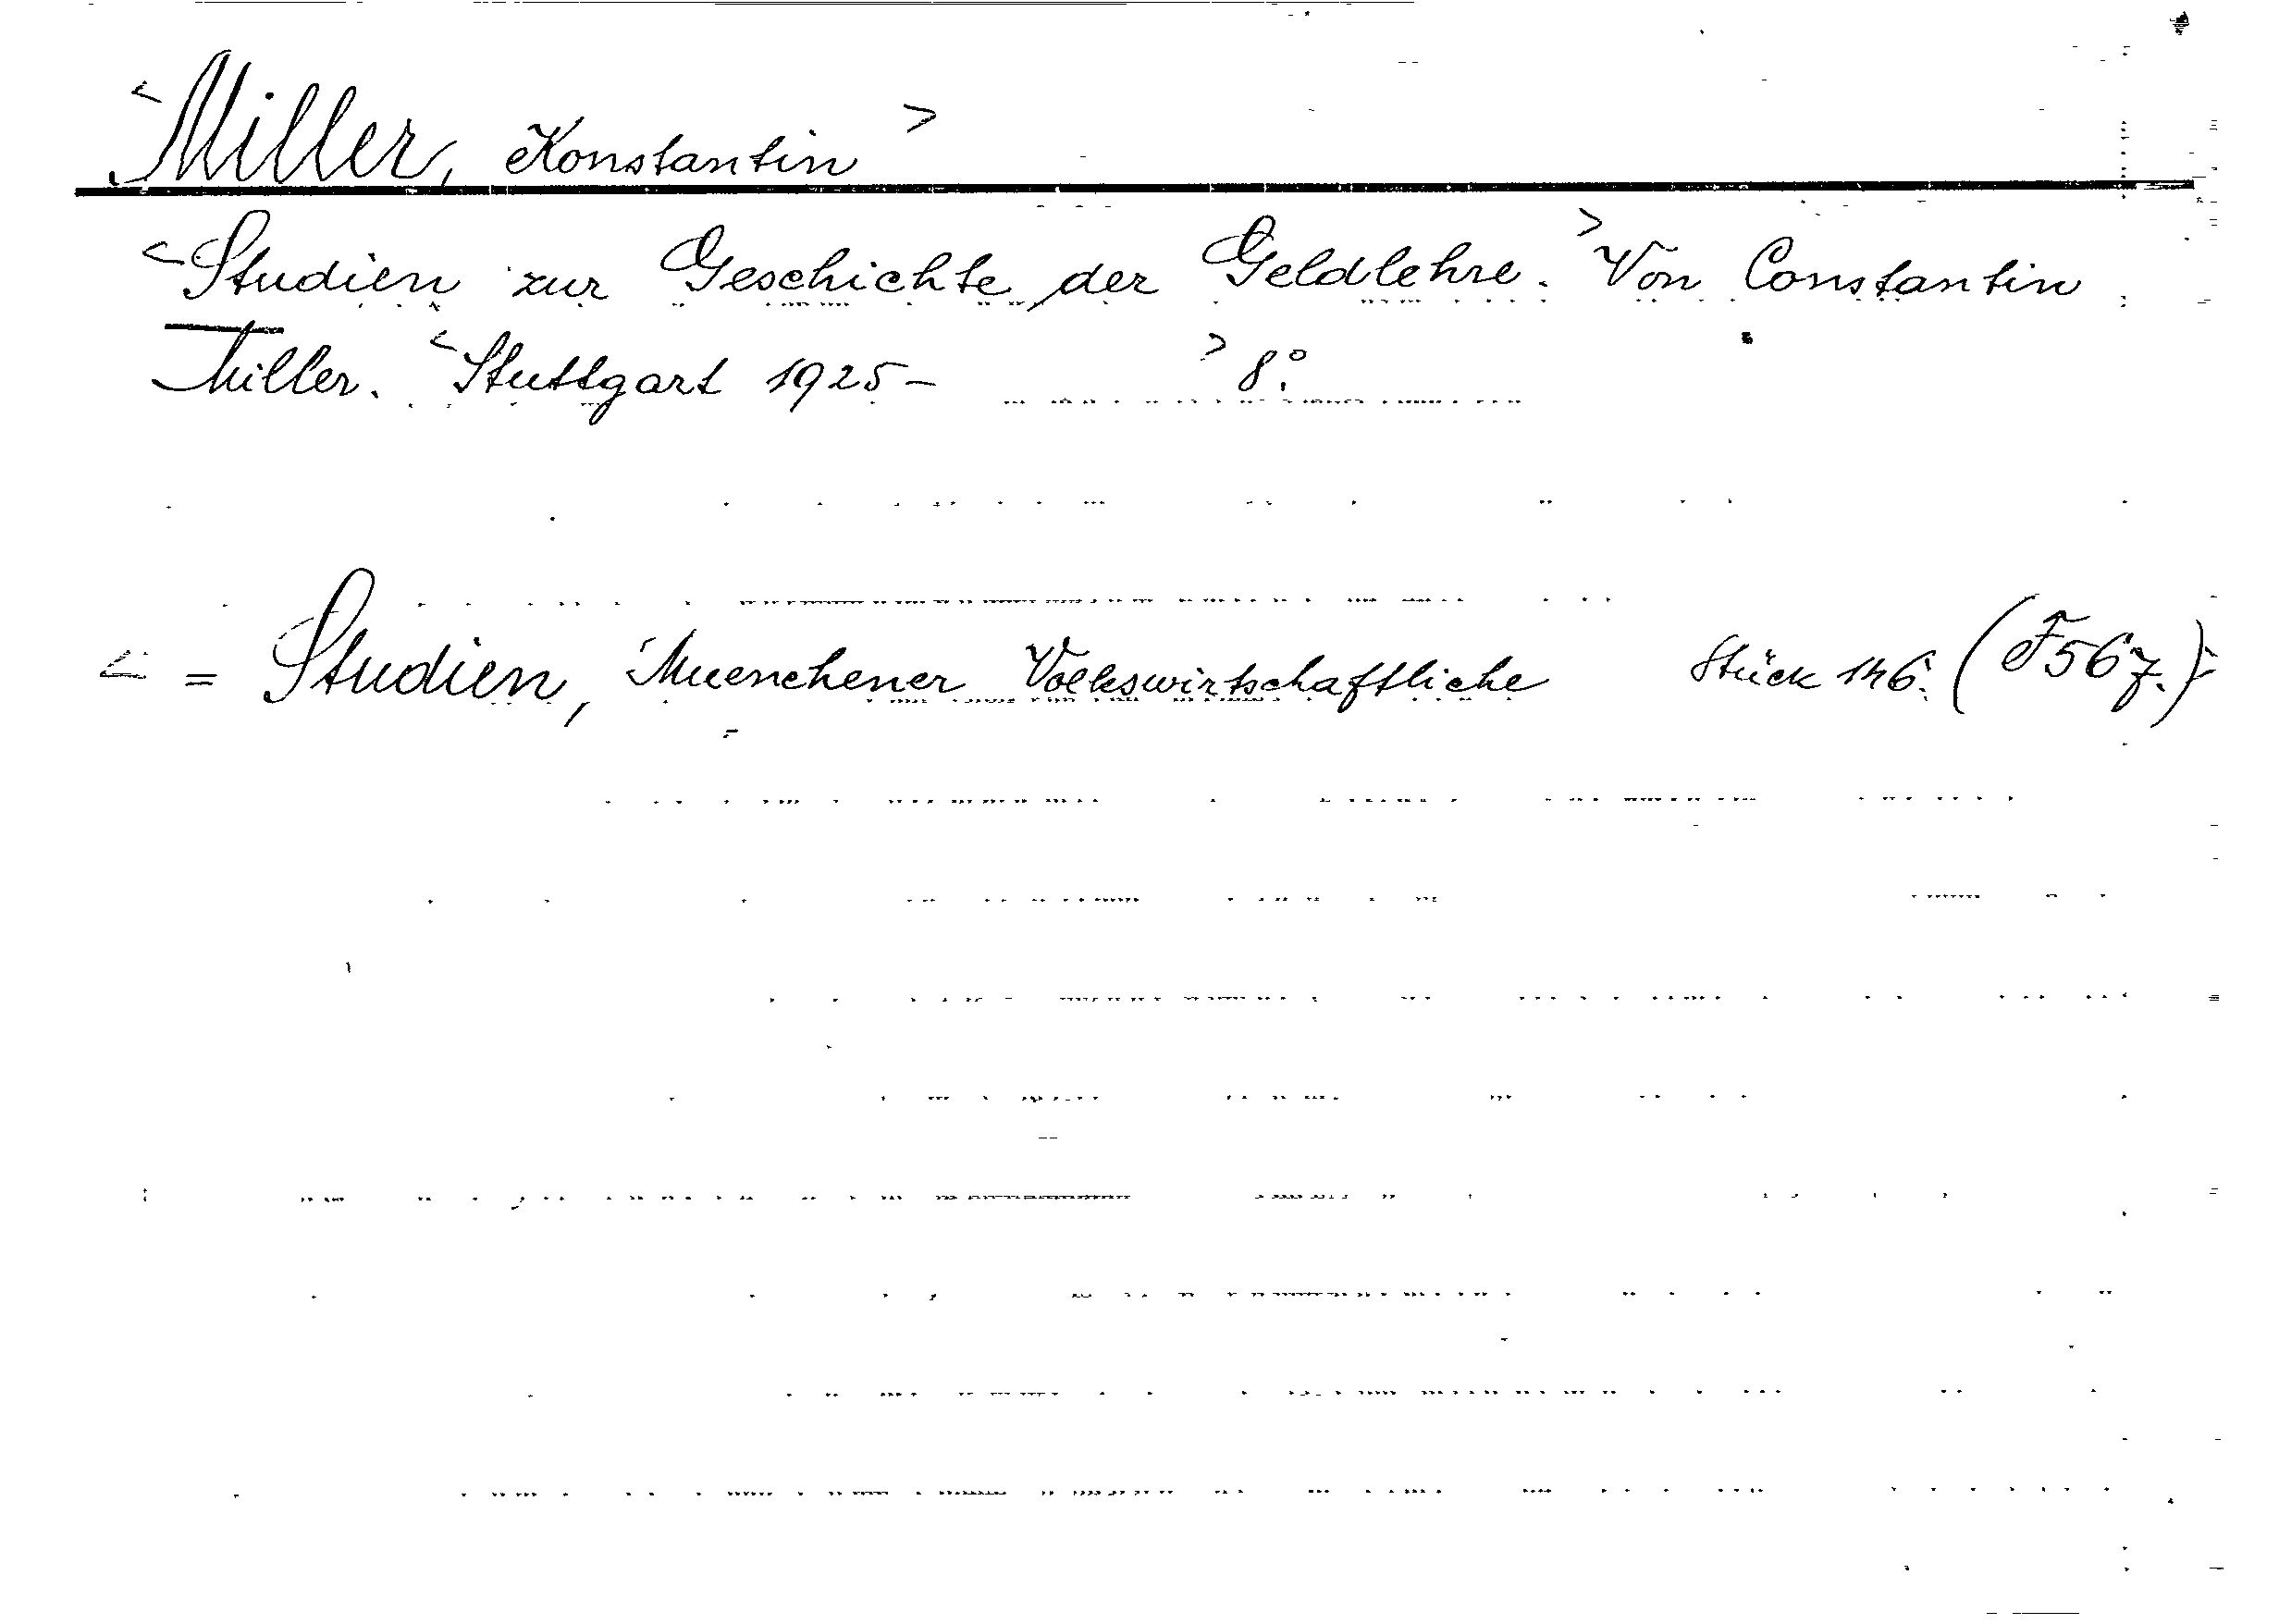 <Miller, Konstantin>
<Studien zur Geschichte der Geldlehre.> Von Constantin
Miller. <Stuttgart 1925-> 8°.
<= Studien, Muenchener Volkswirtschaftliche Stück 146. (F567.)>